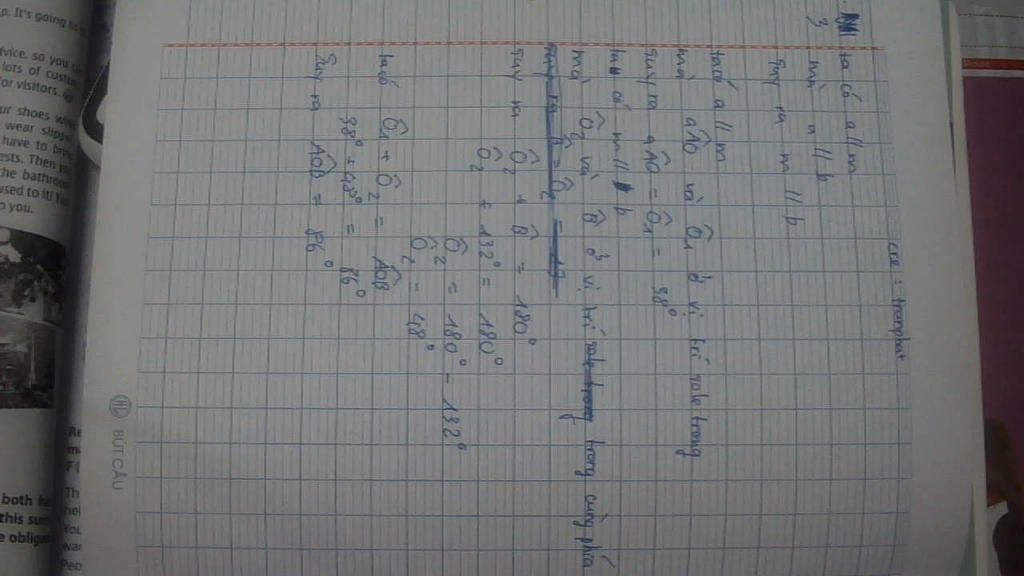 cre: tranphat
3 ta có a // m
mà a // b
suy ra m // b
ta có a // m
mà aÂO và Ô1 ở vị trí sole trong
suy ra aÂO = Ô1 = 38°
có m // b
mà Ô2 và B̂ ở vị trí sole trong trong cùng phía
suy ra B̂ = Ô2 =
suy ra Ô2 + B̂ = 180°
Ô2 + 132° = 180°
Ô2 = 180° - 132°
Ô2 = 48°
ta có Ô1 + Ô2 = AÔB
38° + 48° = 86°
Suy ra AÔB = 86°
BUTCAU
p. It's going to
dvice, so you
lots of custom
for visitors.
ur shoes wh
wear slippe
have to brin
ests. Then yo
the bathroom
used to it! Yo
o you.
both ha
this sum
e obliga